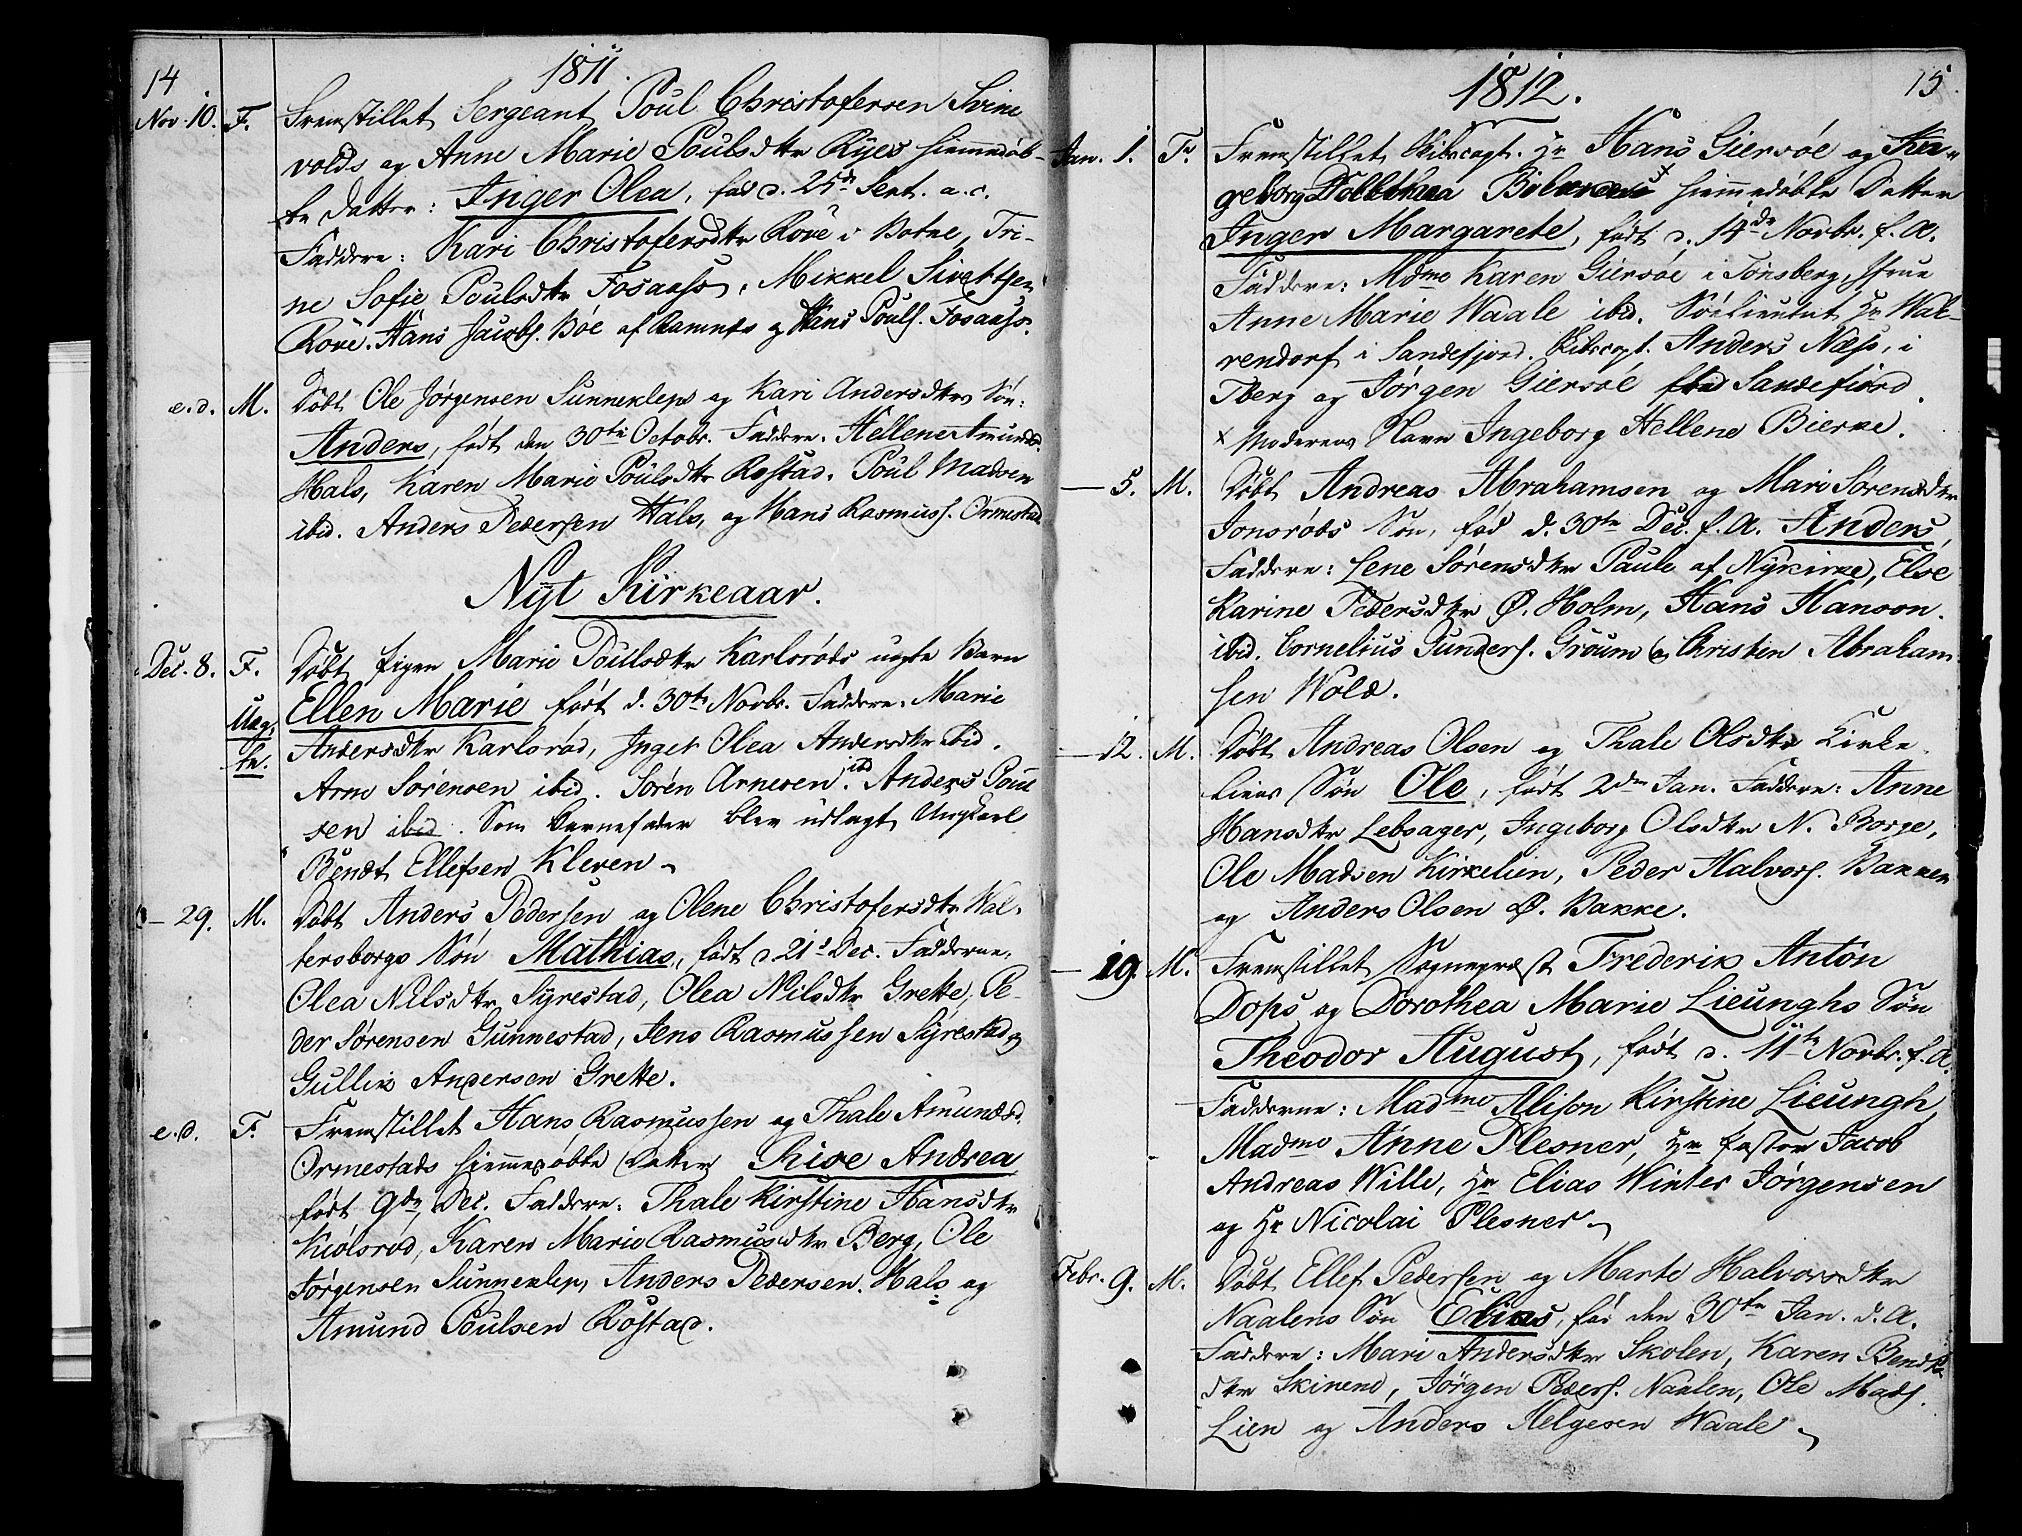 14
1811.
Nov. 10. F. Fremstillet Sergeant Poul Christofersen Svine
volds og Anne Marie Poulsdtr Ryes hiemmedøb-
te Datter: Inger Olea, fød d. 25de Sept. a.c.
Faddere: Kari Christofersdtr Røve i Botne, Tri-
ne Sofie Poulsdtr Fosaass, Mikkel Sivertsen
Røve. Hans Jacobs. Bøe af Ramnes og Hans Pouls. Fosaass.
e.d. M. Døbt Ole Jørgensen Sunnekleps og Kari Andersdtrs Søn:
Anders, født den 30te Octobr. Faddere. Hellene Amundsd.
Hals, Karen Marie Poulsdtr Rostad. Poul Madsen
ibid. Anders Pedersen Hals, og Hans Rasmuss. Ormestad
Nyt Kirkeaar.
Dec. 8. F. Døbt Pigen Marie Poulsdtr Karlsrøds uægte Barn
Uæg Ellen Marie født d. 30te Novbr. Faddere: Marie
te. Andersdtr Karlsrød, Inger Olea Andersdtr ibid.
Arne Sørensen ibid. Søren Arnesen ibd. Anders Poul
sen ibid. Som Barnefader blev udlagt Ungkarl
Bendt Ellefsen Kleven
- 29. M. Døbt Anders Pedersen og Olene Christofersdtr Wal-
tersborgs Søn Mathias, født d. 21s Dec. Fadderne.
Olea Nilsdtr Syrestad, Olea Nilsdtr Grette, Pe-
der Sørensen Gunnestad, Jens Rasmussen Syrestad og
Gullik Andersen Grette.
e.d. F. Fremstillet Hans Rasmussen og Thale Amundsd.
Ormestads hiemmedøbte Datter Sise Andrea
født 9de Dec. Faddere: Thale Kirstine Hansdtr
Kiølsrød, Karen Marie Rasmusdtr Berg, Ole
Jørgensen Sunneklep, Anders Pedersen Hals og
Amund Poulsen Rostad.
15
1812.
Jan. 1. F. Fremstillet Skibscapt. Hr Hans Giersøe og
hiemmedøbte Datter
Inger Margarete, født d. 14de Novbr. f.A.
Faddere: Mdme Karen Giersøe i Tønsberg, Frue
Anne Marie Waale ibid. Søelieutnt Hr Wal-
rendorf i Sandefjord. Skibscapt. Anders Næss, i
Tberg og Jørgen Giersøe Sandefiord.
x Moderens Navn Ingeborg Hellene Bierke.
- 5. M. Døbt Andreas Abrahamsen og Mari Sørensdtr
Jonsrøds Søn, fød d. 30te Dec. f.A. Anders,
Faddere: Lene Sørensdtr Paule af Nykirke, Else
Karine Pedersdtr Ø. Holm, Hans Hanson
ibid. Cornelius Gunders. Grøum og Christen Abraham
sen Wold.
- 12. M. Døbt Andreas Olsen og Thale Olsdtr Kirke
liens Søn Ole, født 2den Jan. Faddere: Anne
Hansdtr Lebsager, Ingeborg Olsdtr N. Borge,
Ole Madsen Kirkelien, Peder Halvors. Bakken
og Anders Olsen Ø. Bakke.
- 19. M. Fremstillet Sognepræst Frederik Anton
Dops og Dorothea Marie Lieunghs Søn
Theodor August, født d. 11te Novbr. f.A.
Fadderne: Madme Alison Kirstine Lieungh,
Madme Anne Plesner, Hr Pastor Jacob
Andreas Wille, Hr Elias Winter Jørgensen
og Hr Nicolai Plesner
Febr. 9. M. Døbt Ellef Pedersen og Marte Halvorsdtr
Naalens Søn Elias, fød den 30te Jan. d.A.
Faddere: Mari Andersdtr Skolen, Karen Bendts
dtr Skinend, Jørgen Peders. Naalen, Ole Mads.
Lien og Anders Helgesen Waale